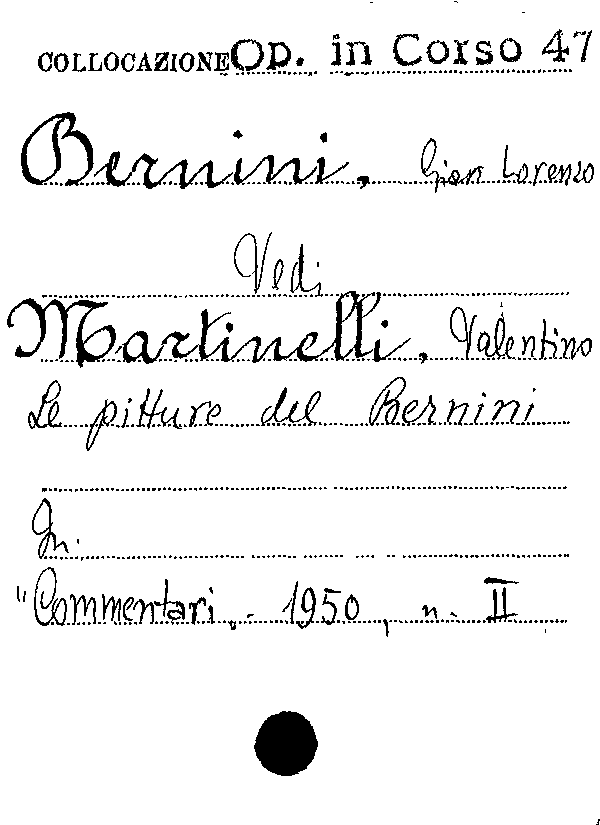 COLLOCAZIONE Op. in Corso 47
Bernini, Gian Lorenzo
Vedi
Martinelli, Valentino
Le pitture del Bernini
In.
"Commentari,- 1950, n. II